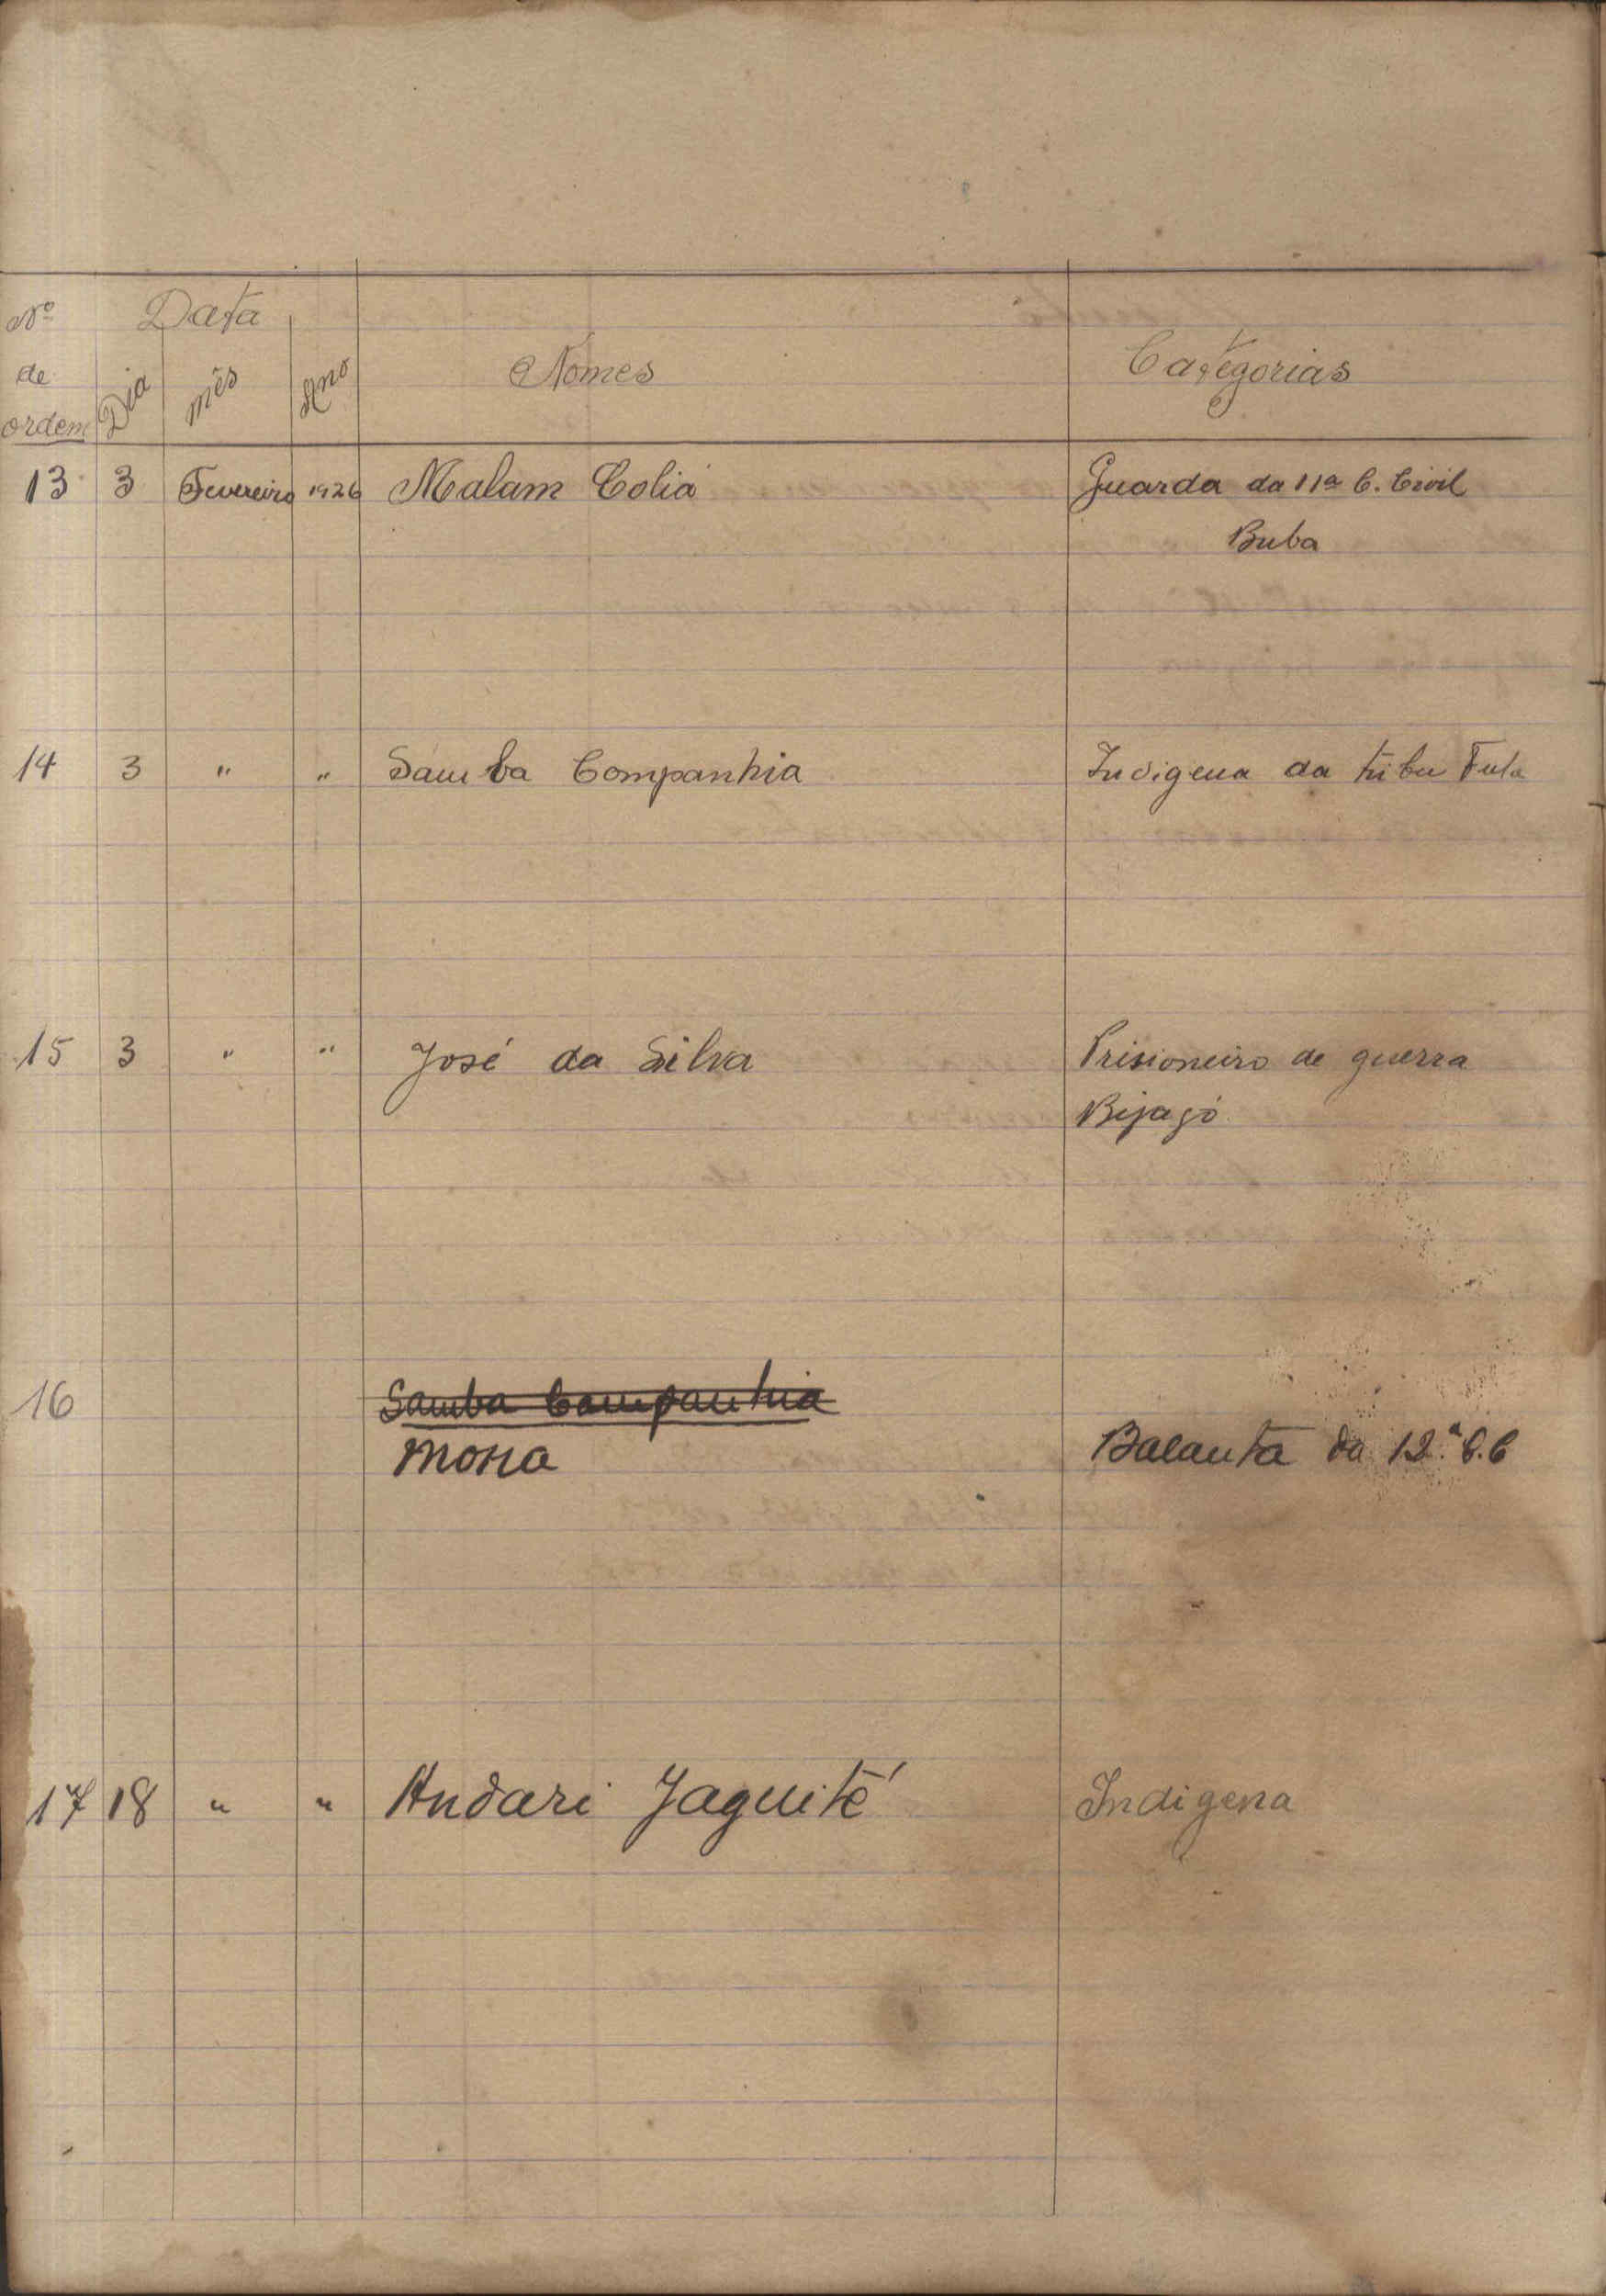 Nº Data
de Dia mês Ano Nomes Categorias
ordem
13 3 Fevereiro 1926 Malam Coliá Guarda da 11ª C. Civil
Buba
14 3 " " Samba Companhia Indigena da tribu Fula
15 3 " " José da Silva Prisioneiro de guerra
Bijagó
16 Samba Companhia
Mona Balanta da 12.ª C.C
17 18 " " Andari Jaquité Indigena